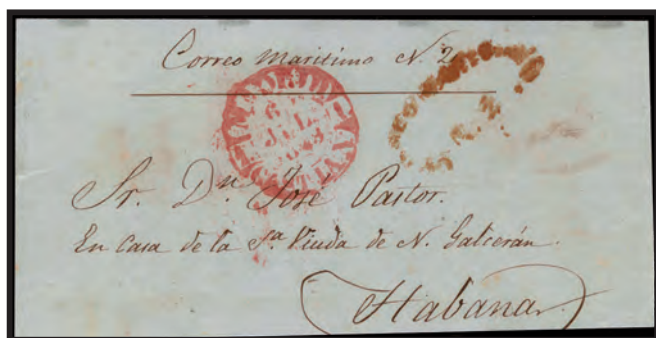 Correo Maritimo N. 2
Sr. Dn. José Pastor.
En Casa de la Sa. Viuda de N. Galcerán.
Habana